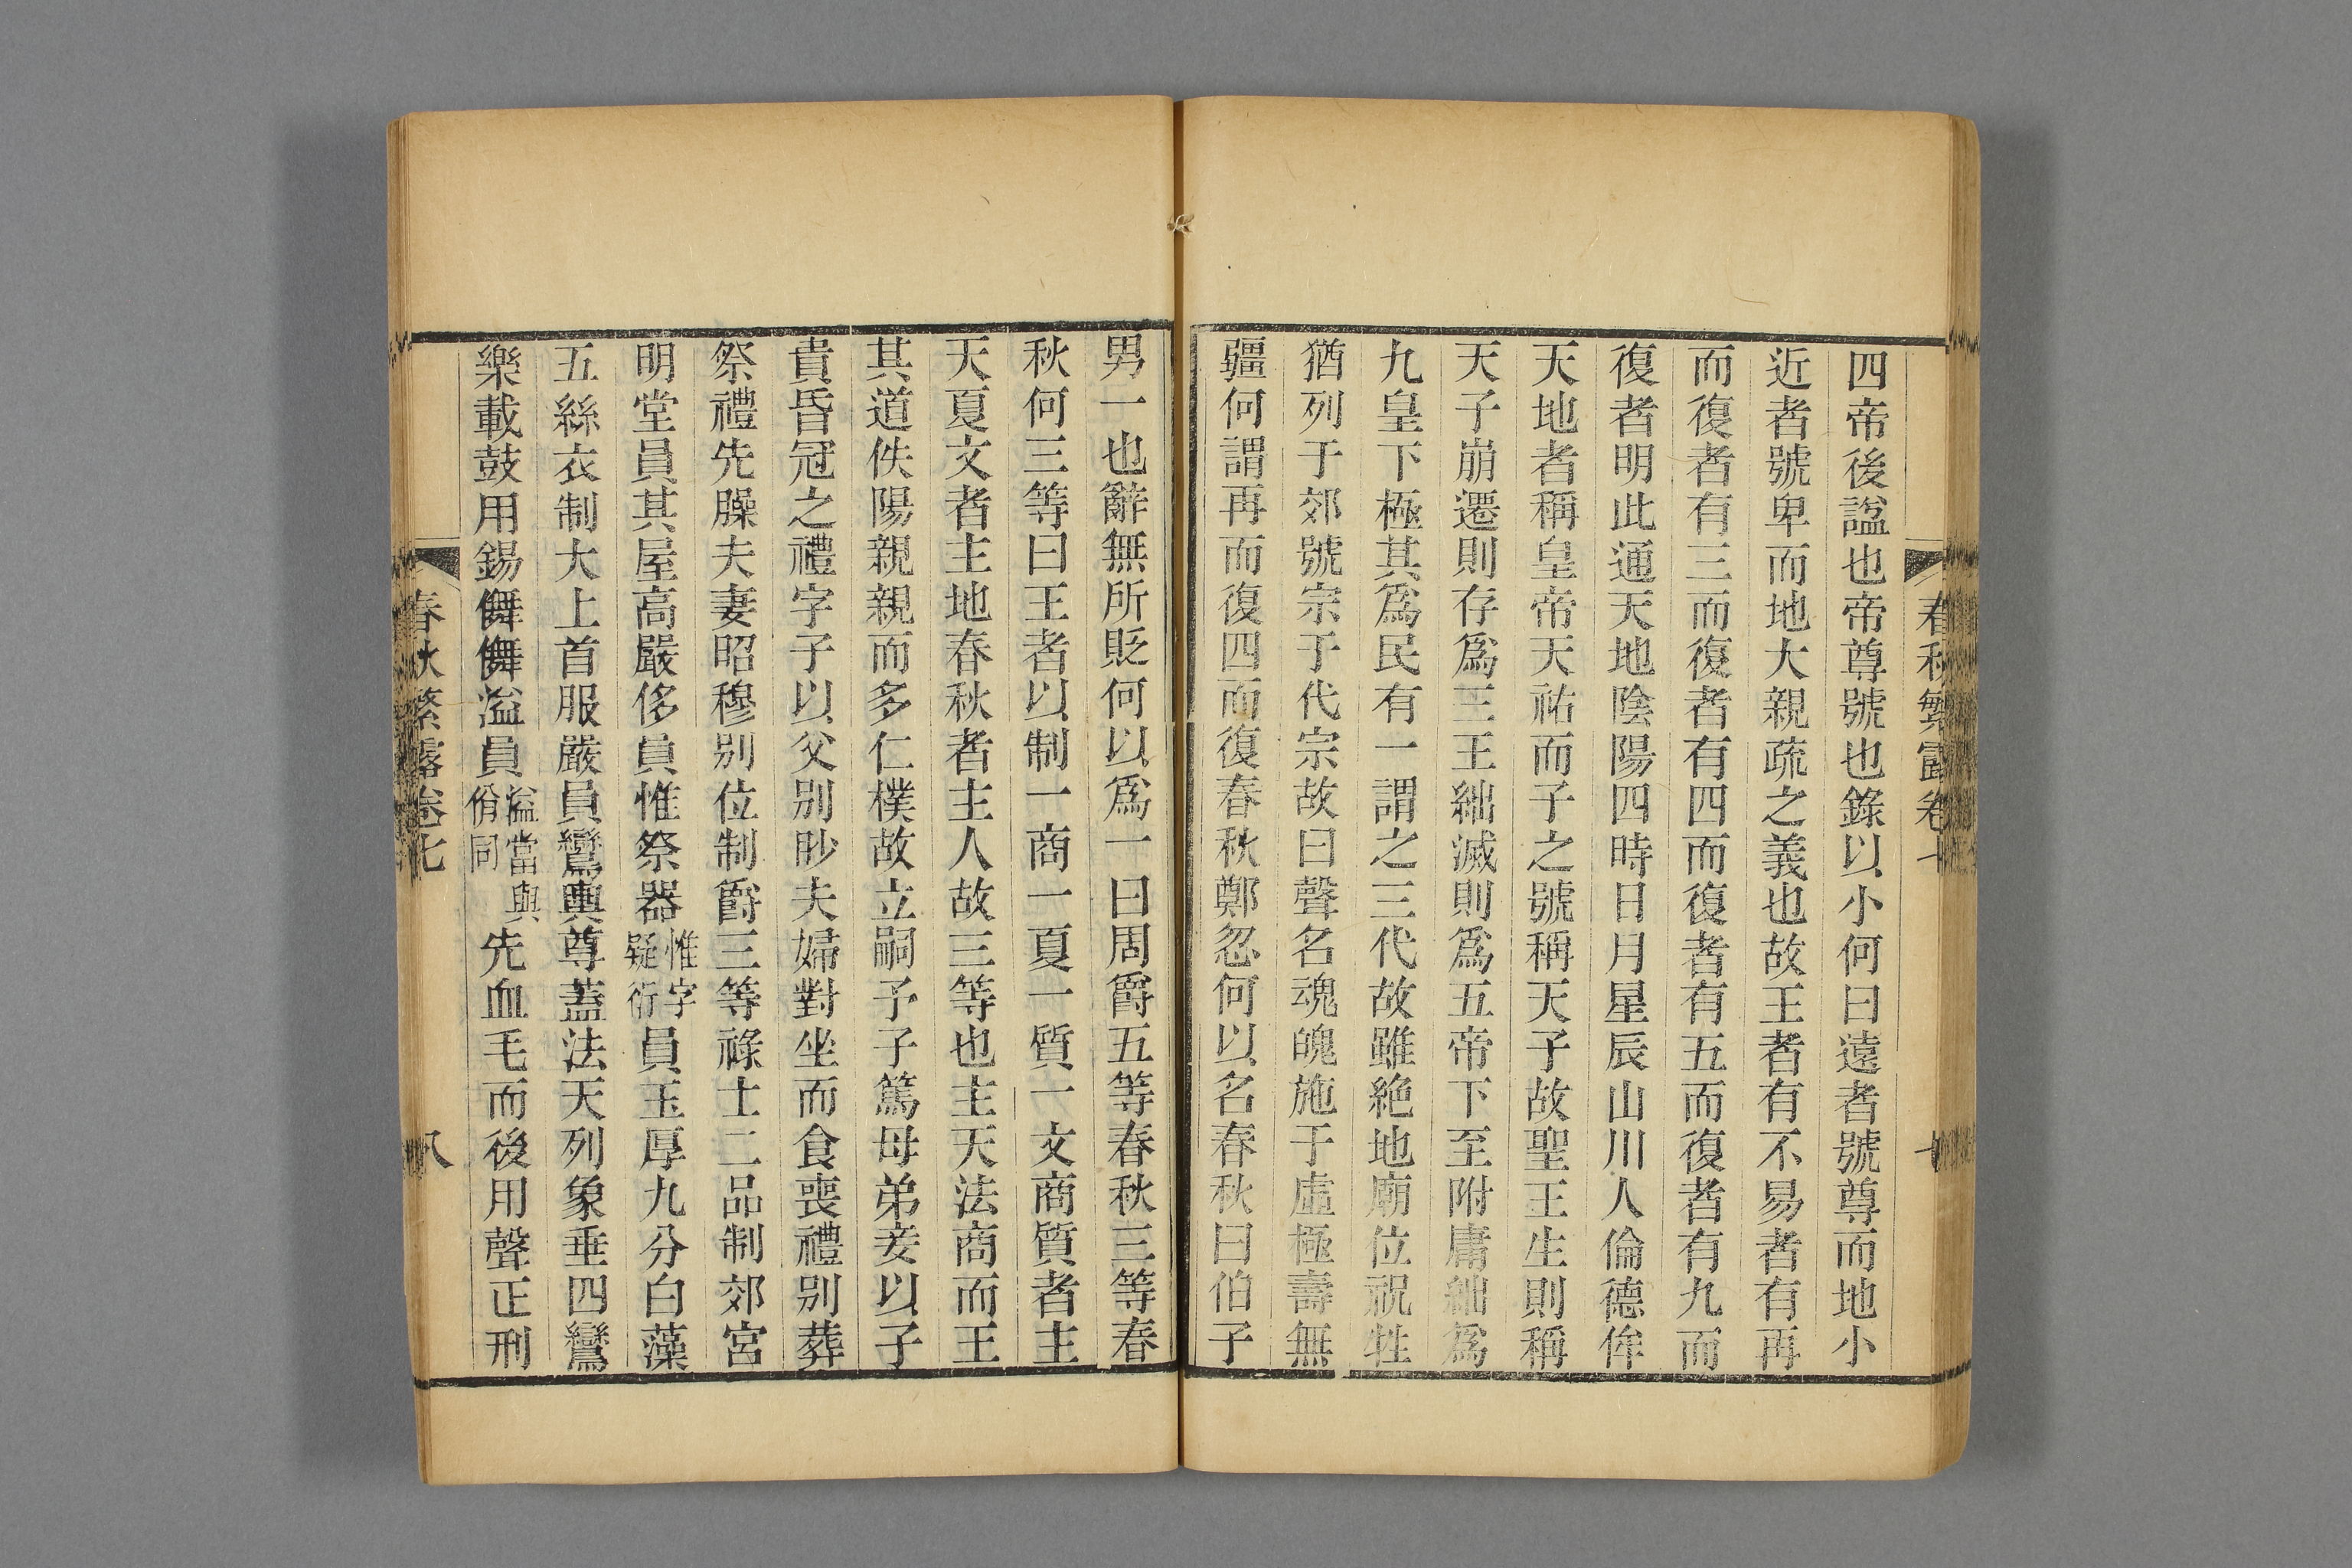 春秋繁露卷七
四帝後諡也帝尊號也錄以小何曰遠者號尊而地小
近者號卑而地大親疏之義也故王者有不易者有再
而復者有三而復者有四而復者有五而復者有九而
復者明此通天地陰陽四時日月星辰山川人倫德侔
天地者稱皇帝天祐而子之號稱天子故聖王生則稱
天子崩遷則存爲三王絀滅則爲五帝下至附庸絀爲
九皇下極其爲民有一謂之三代故雖絶地廟位祝牲
猶列于郊號宗于代宗故曰聲名魂魄施于虛極壽無
疆何謂再而復四而復春秋鄭忽何以名春秋曰伯子
男一也辭無所貶何以爲一曰周爵五等春秋三等春
秋何三等曰王者以制一商一夏一質一文商質者主
天夏文者主地春秋者主人故三等也主天法商而王
其道佚陽親親而多仁樸故立嗣予子篤母弟妾以子
貴昏冠之禮字子以父別眇夫婦對坐而食喪禮別葬
祭禮先臊夫妻昭穆別位制爵三等祿士二品制郊宮
明堂員其屋高嚴侈員惟祭器惟字疑衍員玉厚九分白藻
五絲衣制大上首服嚴員鸞輿尊蓋法天列象垂四鸞
樂載鼓用錫儛儛溢員溢當與佾同先血毛而後用聲正刑
春秋繁露卷七
八